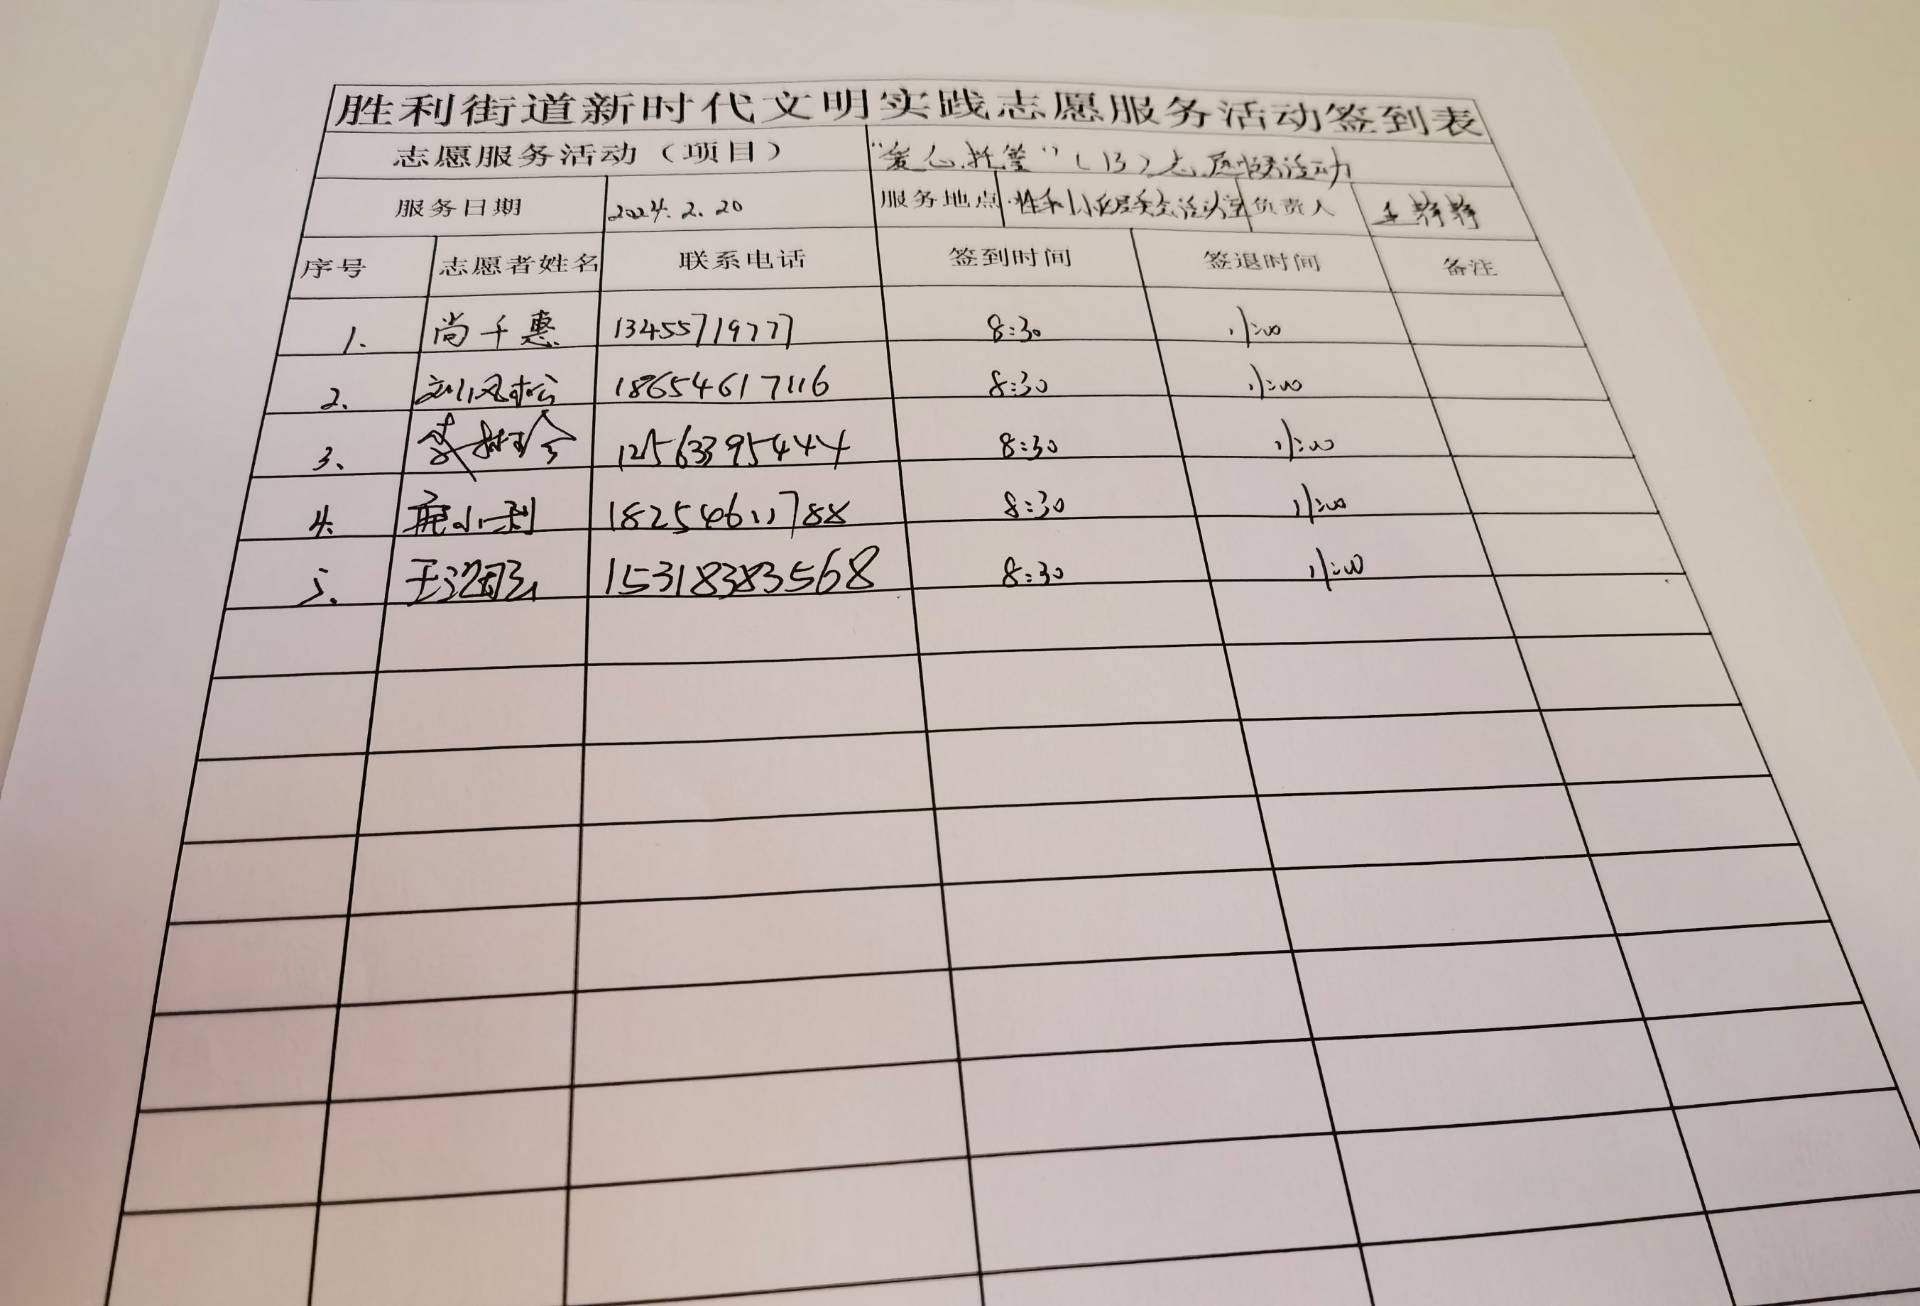 胜利街道新时代文明实践志愿服务活动签到表
志愿服务活动（项目） "爱心托管"（13）志愿服务活动
服务日期 2024.2.20 服务地点 负责人 王静静
序号 志愿者姓名 联系电话 签到时间 签退时间 备注
1. 尚千惠 13455719777 8:30 11:00
2. 刘风松 18654617116 8:30 11:00
3. 12563395444 8:30 11:00
4. 小利 18254611788 8:30 11:00
5. 王 15318383568 8:30 11:00